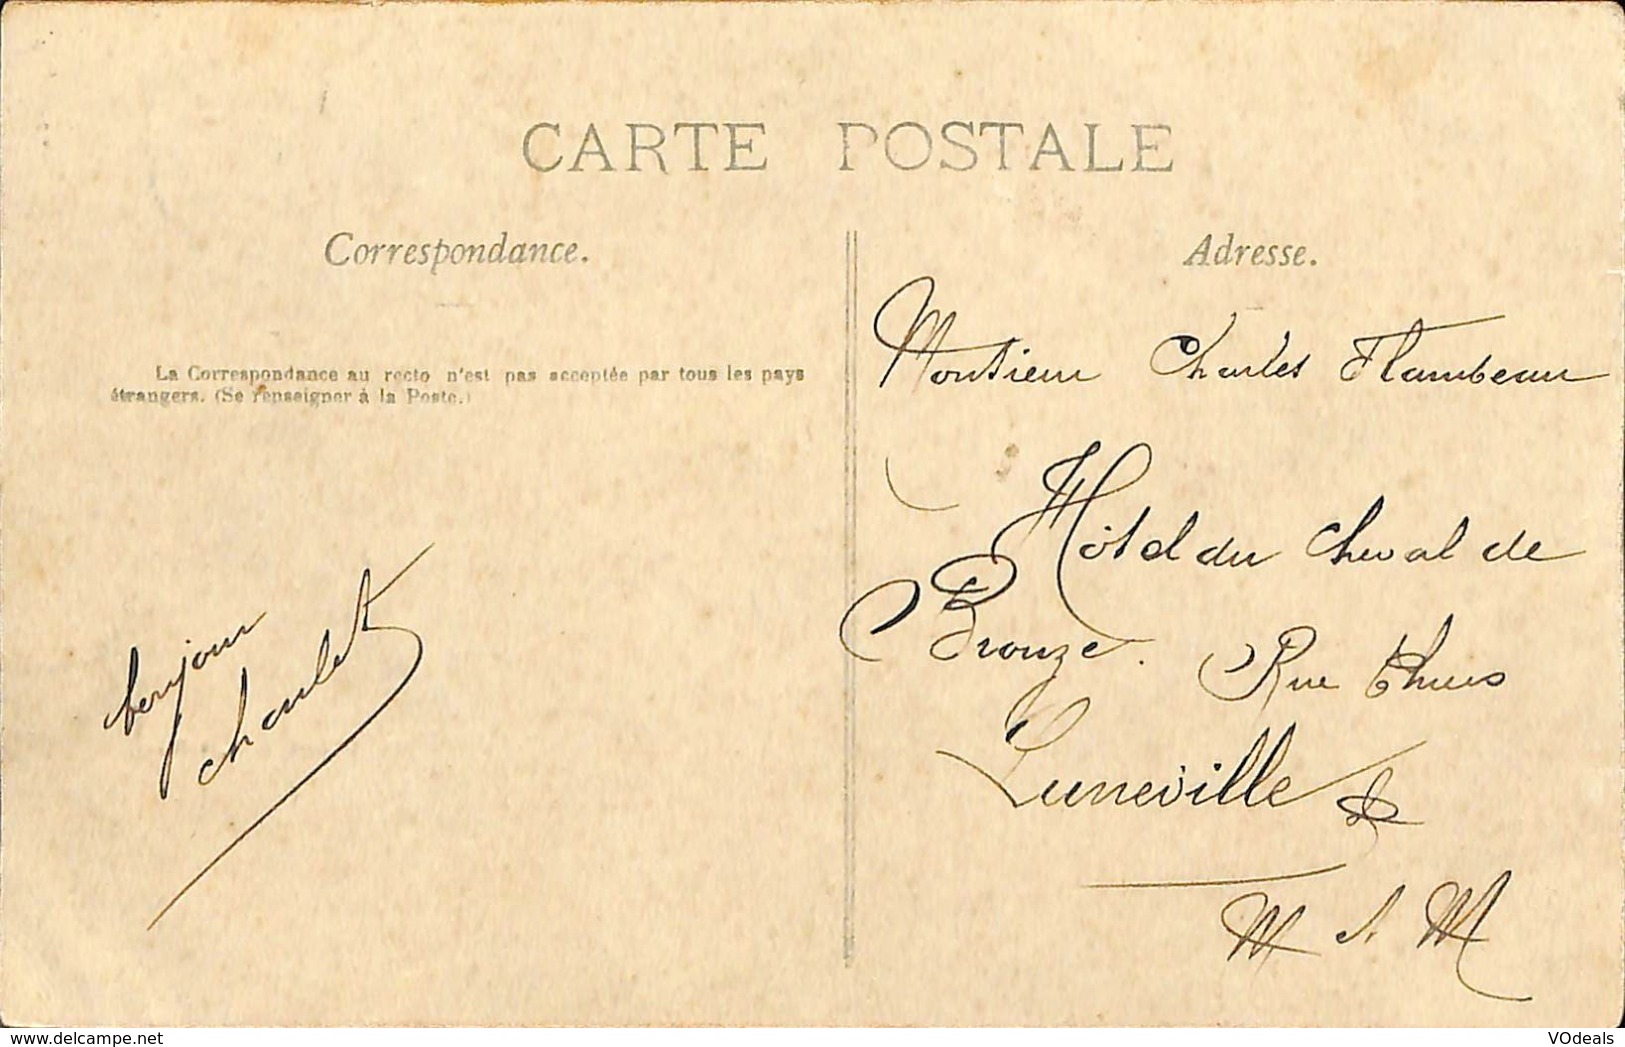 CARTE POSTALE
Correspondance.
La Correspondance au recto n'est pas acceptée par tous les pays
étrangers. (Se renseigner à la Poste.)
bonjour
Adresse.
Monsieur Charles Flambeau
Hôtel du Cheval de
Bronze. Rue
Luneville
M et M
www.delcampe.net
VOdeals